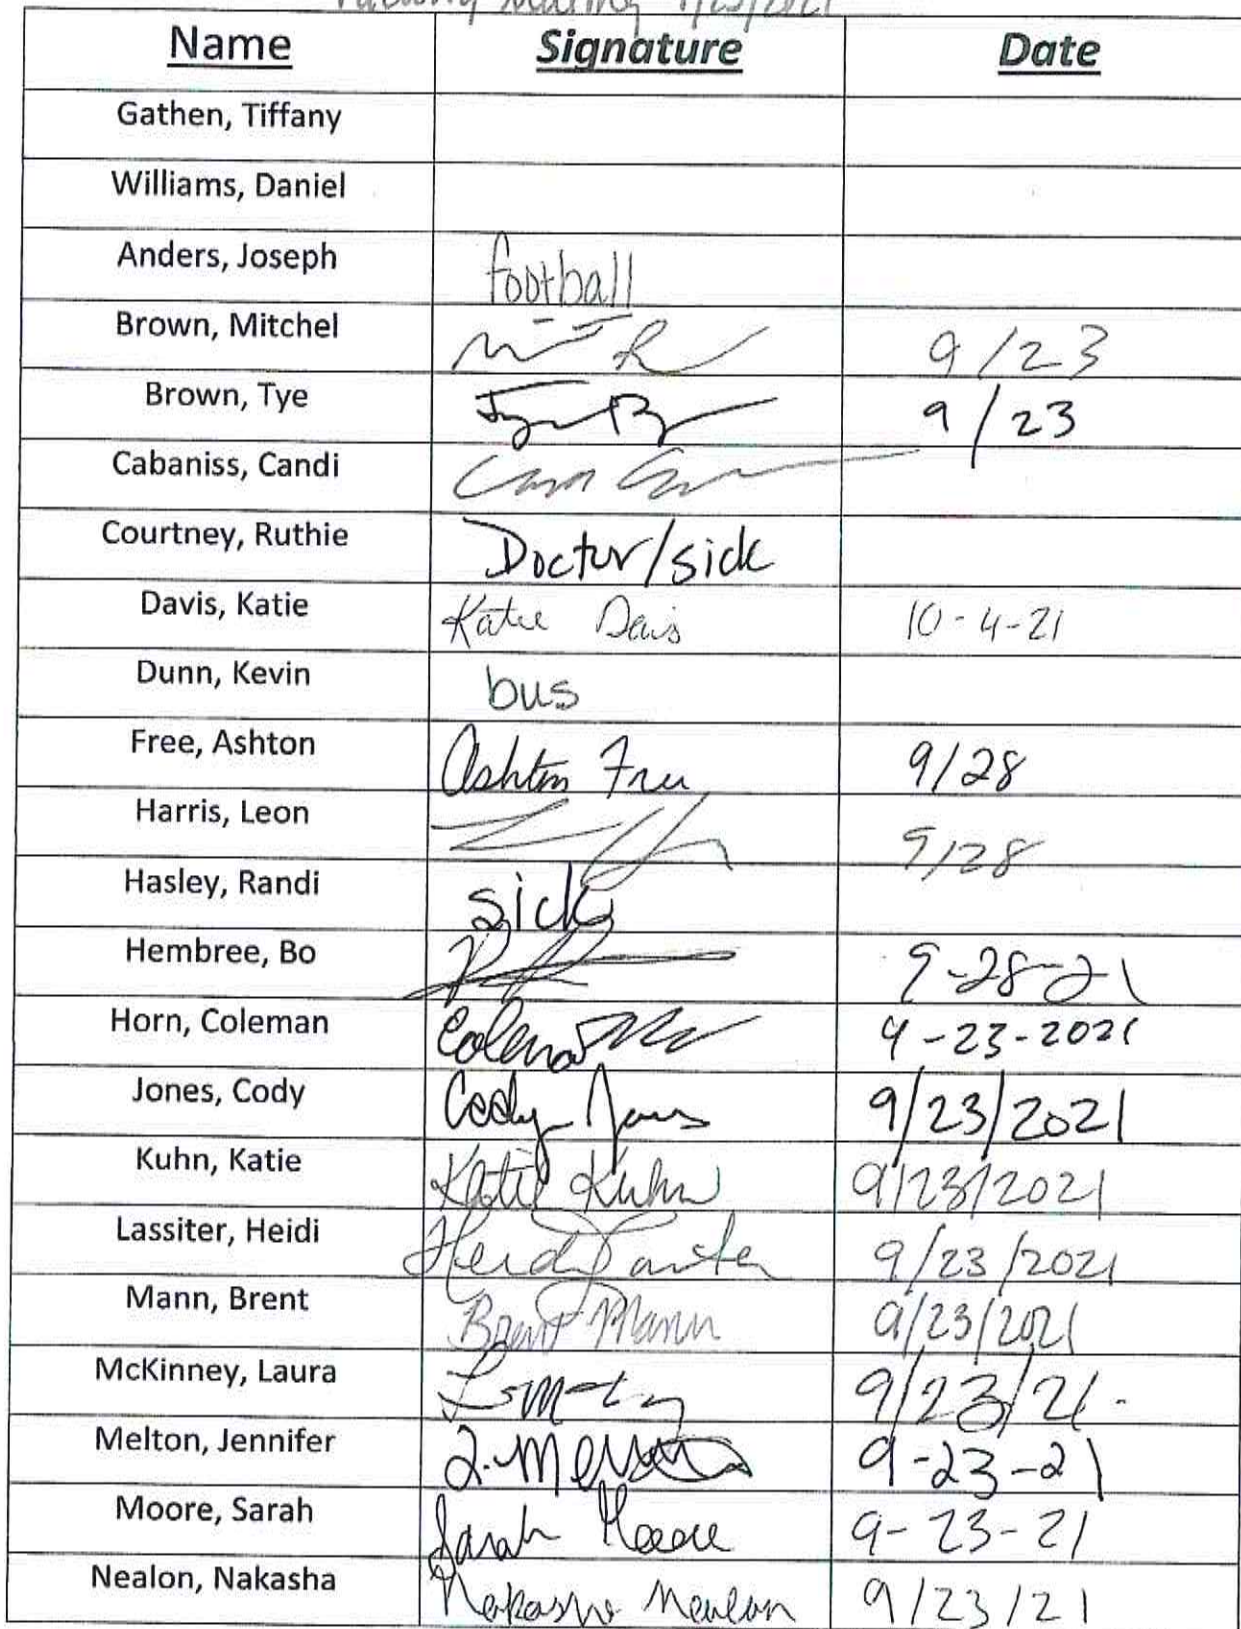 Faculty Meeting 9/23/2021
Name Signature Date
Gathen, Tiffany
Williams, Daniel
Anders, Joseph football
Brown, Mitchel 9/23
Brown, Tye 9/23
Cabaniss, Candi
Courtney, Ruthie Doctor/sick
Davis, Katie Katie Davis 10-4-21
Dunn, Kevin bus
Free, Ashton Ashton Free 9/28
Harris, Leon 9/28
Hasley, Randi sick
Hembree, Bo 9-28-21
Horn, Coleman 9-23-2021
Jones, Cody Cody Jones 9/23/2021
Kuhn, Katie Katie Kuhn 9/23/2021
Lassiter, Heidi Heidi Lassiter 9/23/2021
Mann, Brent Brent Mann 9/23/2021
McKinney, Laura 9/23/21
Melton, Jennifer J. Melton 9-23-21
Moore, Sarah Sarah Moore 9-23-21
Nealon, Nakasha Nakasha Nealon 9/23/21